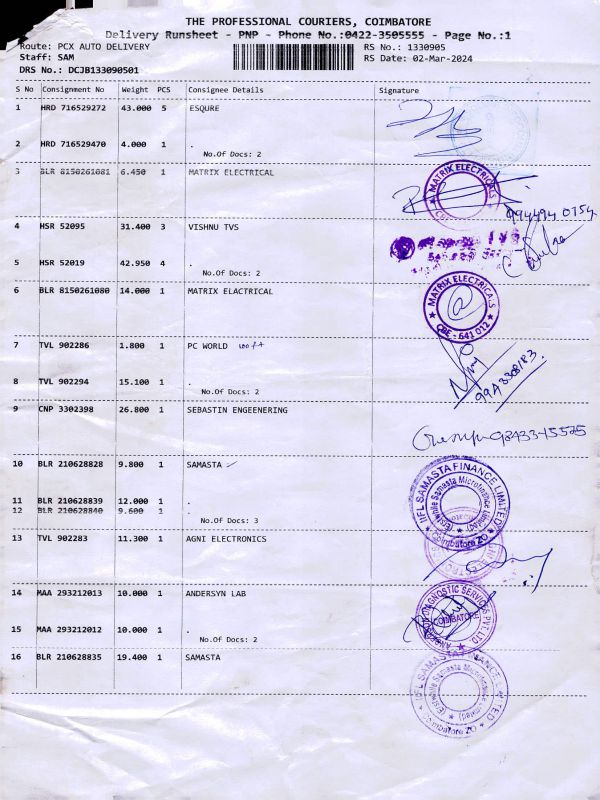 THE PROFESSIONAL COURIERS, COIMBATORE
Delivery Runsheet - PNP - Phone No.:0422-3505555 - Page No.:1
Route: PCX AUTO DELIVERY RS No.: 1330905
Staff: SAM RS Date: 02-Mar-2024
DRS No.: DCJB133090501
S No Consignment No Weight PCS Consignee Details Signature
1 HRD 716529272 43.000 5 ESQURE
2 HRD 716529470 4.000 1 .
No.Of Docs: 2
3 BLR 8150261081 6.450 1 MATRIX ELECTRICAL
MATRIX ELECTRICALS
994494 0754
4 HSR 52095 31.400 3 VISHNU TVS
5 HSR 52019 42.950 4 .
No.Of Docs: 2
6 BLR 8150261080 14.000 1 MATRIX ELACTRICAL
MATRIX ELECTRICALS
CBE - 641 012
7 TVL 902286 1.800 1 PC WORLD 100ft
8 TVL 902294 15.100 1 .
No.Of Docs: 2
9 CNP 3302398 26.800 1 SEBASTIN ENGEENERING
98433-15525
10 BLR 210628828 9.800 1 SAMASTA
IIFL SAMASTA FINANCE LIMITED
(Erstwhile Samasta Microfinance Limited)
Coimbatore ZO
11 BLR 210628839 12.000 1 .
12 BLR 210628840 9.600 1 .
No.Of Docs: 3
13 TVL 902283 11.300 1 AGNI ELECTRONICS
14 MAA 293212013 10.000 1 ANDERSYN LAB
DIAGNOSTIC SERVICES PVT. LTD.
COIMBATORE
15 MAA 293212012 10.000 1 .
No.Of Docs: 2
16 BLR 210628835 19.400 1 SAMASTA
IIFL SAMASTA FINANCE LIMITED
(Erstwhile Samasta Microfinance Limited)
Coimbatore ZO